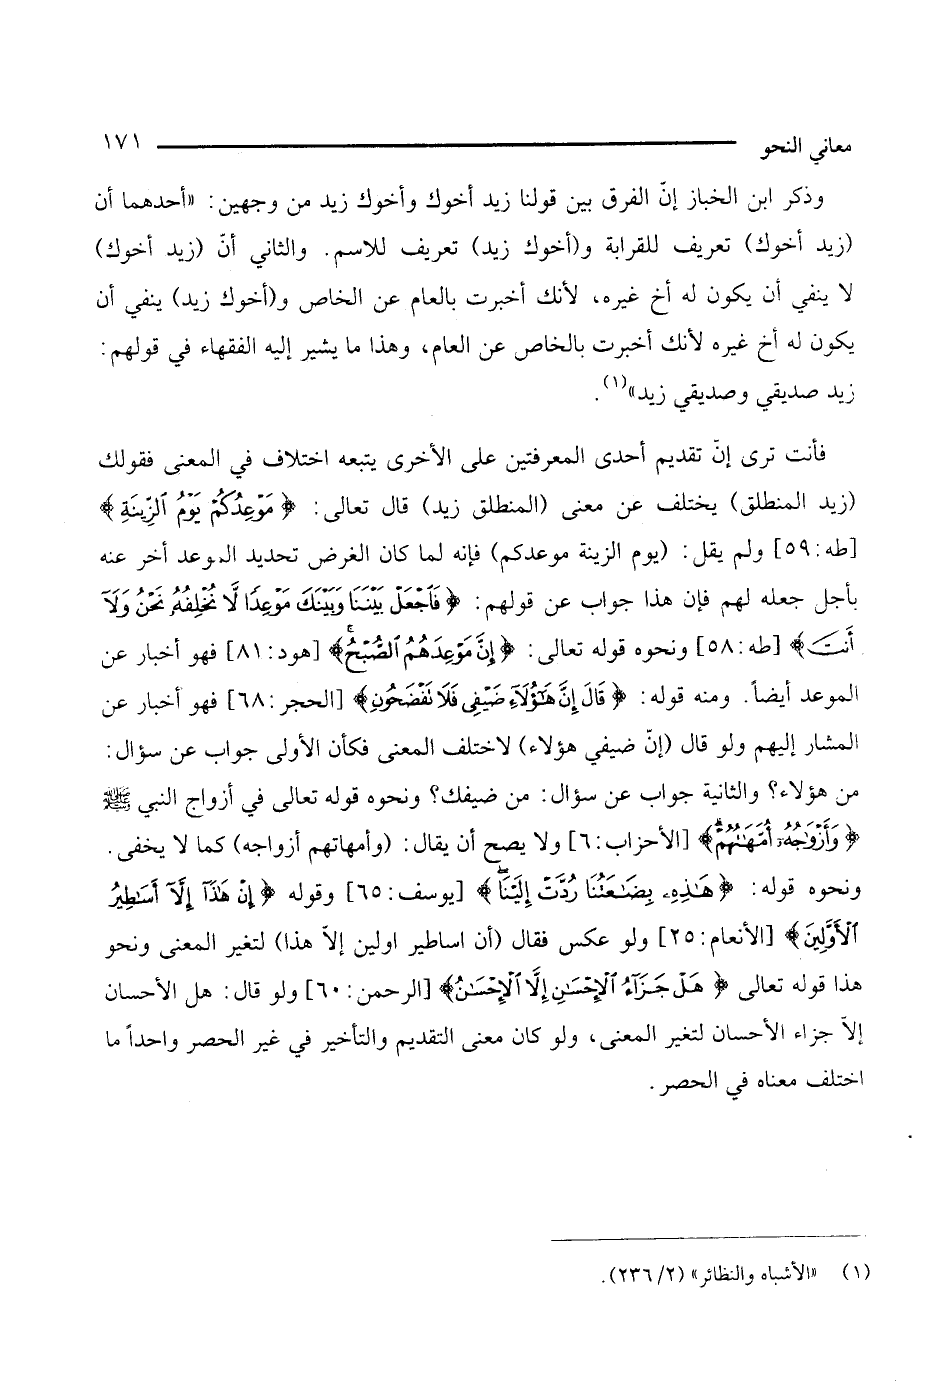 معاني النحو ١٧١
وذكر ابن الخباز إنّ الفرق بين قولنا زيد أخوك وأخوك زيد من وجهين: «أحدهما أن
(زيد أخوك) تعريف للقرابة و(أخوك زيد) تعريف للاسم. والثاني أنّ (زيد أخوك)
لا ينفي أن يكون له أخ غيره، لأنك أخبرت بالعام عن الخاص و(أخوك زيد) ينفي أن
يكون له أخ غيره لأنك أخبرت بالخاص عن العام، وهذا ما يشير إليه الفقهاء في قولهم:
زيد صديقي وصديقي زيد»(١).
فأنت ترى إنّ تقديم أحدى المعرفتين على الأخرى يتبعه اختلاف في المعنى فقولك
(زيد المنطلق) يختلف عن معنى (المنطلق زيد) قال تعالى: ﴿مَوْعِدُكُمْ يَوْمُ ٱلزِّينَةِ﴾
[طه:٥٩] ولم يقل: (يوم الزينة موعدكم) فإنه لما كان الغرض تحديد الموعد أخر عنه
بأجل جعله لهم فإن هذا جواب عن قولهم: ﴿فَٱجْعَلْ بَيْنَنَا وَبَيْنَكَ مَوْعِدًا لَّا نُخْلِفُهُۥ نَحْنُ وَلَآ
أَنتَ﴾ [طه:٥٨] ونحوه قوله تعالى: ﴿إِنَّ مَوْعِدَهُمُ ٱلصُّبْحُ﴾ [هود:٨١] فهو أخبار عن
الموعد أيضاً. ومنه قوله: ﴿قَالَ إِنَّ هَٰٓؤُلَآءِ ضَيْفِى فَلَا تَفْضَحُونِ﴾ [الحجر:٦٨] فهو أخبار عن
المشار إليهم ولو قال (إنّ ضيفي هؤلاء) لاختلف المعنى فكأن الأولى جواب عن سؤال:
من هؤلاء؟ والثانية جواب عن سؤال: من ضيفك؟ ونحوه قوله تعالى في أزواج النبي ﷺ
﴿وَأَزْوَٰجُهُۥٓ أُمَّهَٰتُهُمْ﴾ [الأحزاب:٦] ولا يصح أن يقال: (وأمهاتهم أزواجه) كما لا يخفى.
ونحوه قوله: ﴿هَٰذِهِۦ بِضَٰعَتُنَا رُدَّتْ إِلَيْنَا﴾ [يوسف:٦٥] وقوله ﴿إِنْ هَٰذَآ إِلَّآ أَسَٰطِيرُ
ٱلْأَوَّلِينَ﴾ [الأنعام:٢٥] ولو عكس فقال (أن اساطير اولين إلاّ هذا) لتغير المعنى ونحو
هذا قوله تعالى ﴿هَلْ جَزَآءُ ٱلْإِحْسَٰنِ إِلَّا ٱلْإِحْسَٰنُ﴾ [الرحمن:٦٠] ولو قال: هل الأحسان
إلاّ جزاء الأحسان لتغير المعنى، ولو كان معنى التقديم والتأخير في غير الحصر واحداً ما
اختلف معناه في الحصر.
(١) «الأشباه والنظائر» (٢/ ٢٣٦).